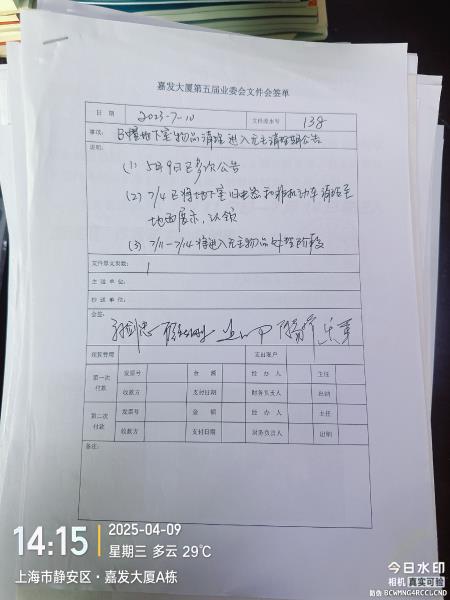 嘉发大厦第五届业委会文件会签单
日 期 2023-7-10 文件流水号 138
事项: B幢地下室物品清理进入无主清理期公告
说明:
(1) 5月9日已多次公告
(2) 7/4已将地下室旧电器和非机动车清理至
地面展示,认领
(3) 7/11-7/14将进入无主物品处理阶段
文件原文页数: 1
主送单位:
抄送单位:
会签:
预算管理 支出账户
第一次付款 发票号 金 额 经 办 人 主任
收款方 支付日期 财务负责人 出纳
第二次付款 发票号 金 额 经 办 人 主任
收款方 支付日期 财务负责人 出纳
备注:
14:15 2025-04-09
星期三 多云 29℃
上海市静安区·嘉发大厦A栋
今日水印
相机 真实可验
防伪 BCWMNG4RCCGCND